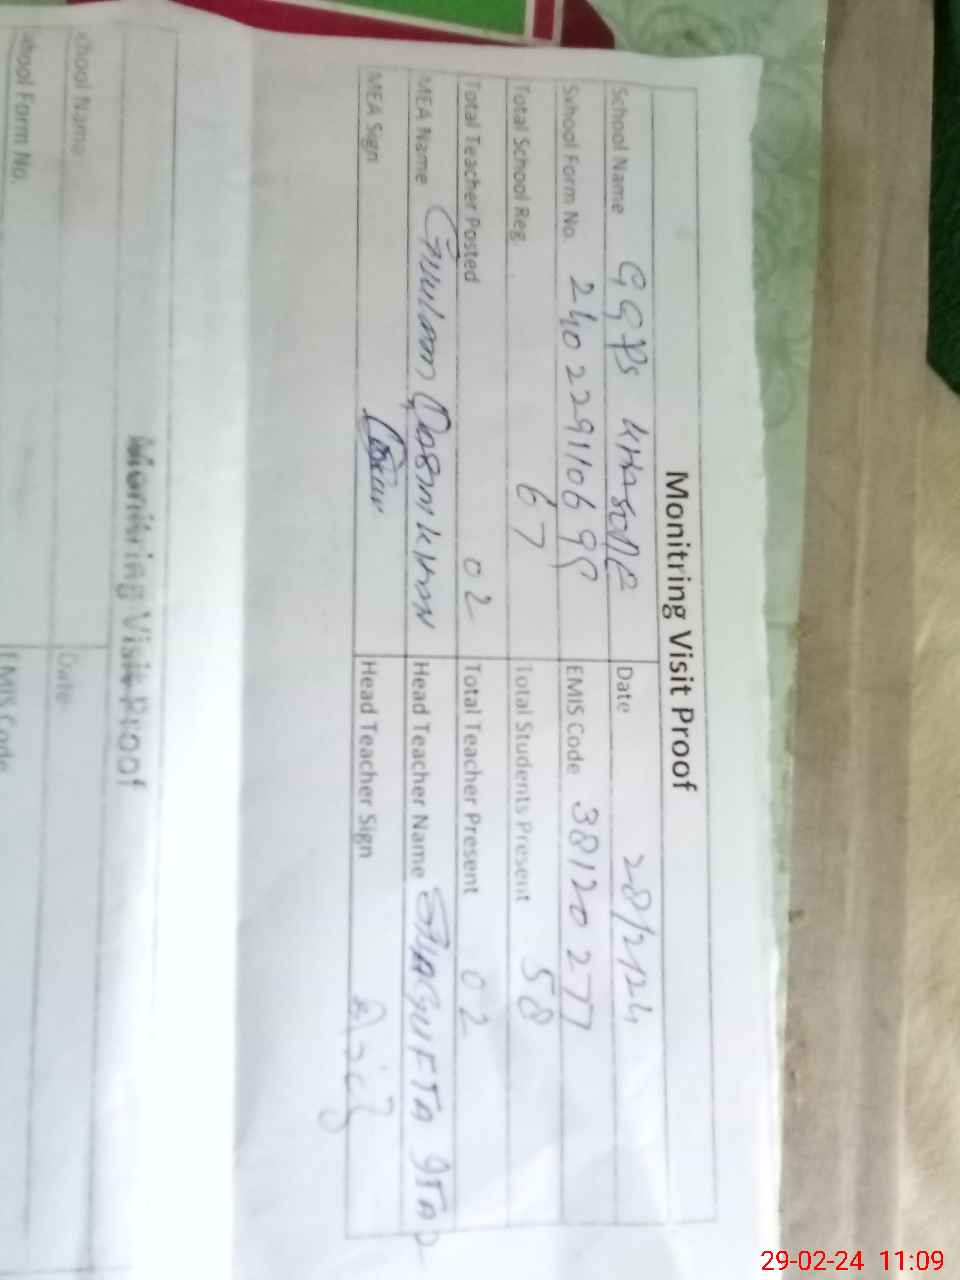 Monitring Visit Proof
School Name GGPS KHASONE Date 28/2/24
School Form No. 240229110699 EMIS Code 38120277
Total School Reg. 67 Total Students Present 58
Total Teacher Posted 02 Total Teacher Present 02
MEA Name Ghulam Qasim Khan Head Teacher Name SHAGUFTA
MEA Sign Head Teacher Sign
Monitring Visit Proof
School Name Date
School Form No. EMIS Code
29-02-24 11:09